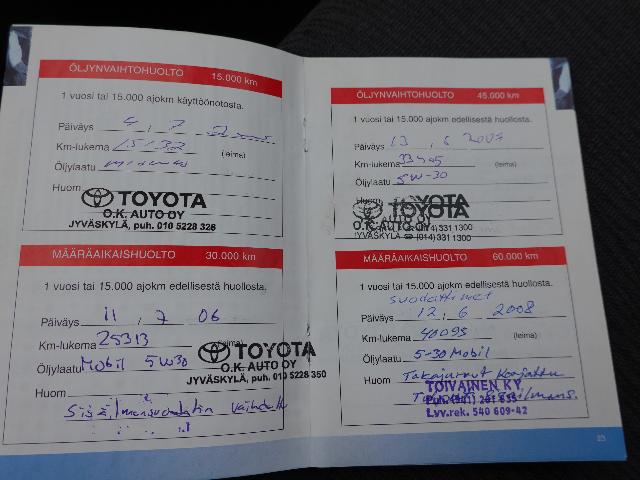 ÖLJYNVAIHTOHUOLTO 15.000 km
1 vuosi tai 15.000 ajokm käyttöönotosta.
Päiväys 4, 7
Km-lukema 15132 (leima)
Öljylaatu
Huom
TOYOTA
O.K. AUTO OY
JYVÄSKYLÄ, puh. 010 5228 326
MÄÄRÄAIKAISHUOLTO 30.000 km
1 vuosi tai 15.000 ajokm edellisestä huollosta.
Päiväys 11, 7 06
Km-lukema 25313 (leima)
Öljylaatu Mobil 5W30
TOYOTA
O.K. AUTO OY
JYVÄSKYLÄ, puh. 010 5228 350
Huom
ÖLJYNVAIHTOHUOLTO 45.000 km
1 vuosi tai 15.000 ajokm edellisestä huollosta.
Päiväys 13, 6 2007
Km-lukema (leima)
Öljylaatu 5W-30
Huom
TOYOTA
O.K. AUTO OY
JYVÄSKYLÄ (014) 331 1300
MÄÄRÄAIKAISHUOLTO 60.000 km
1 vuosi tai 15.000 ajokm edellisestä huollosta.
suodattimet
Päiväys 12, 6 2008
Km-lukema 40093 (leima)
Öljylaatu 5-30 Mobil
Huom Takajarrut Korjattu
TOIVAINEN KY
Lvv.rek. 540 609-42
23